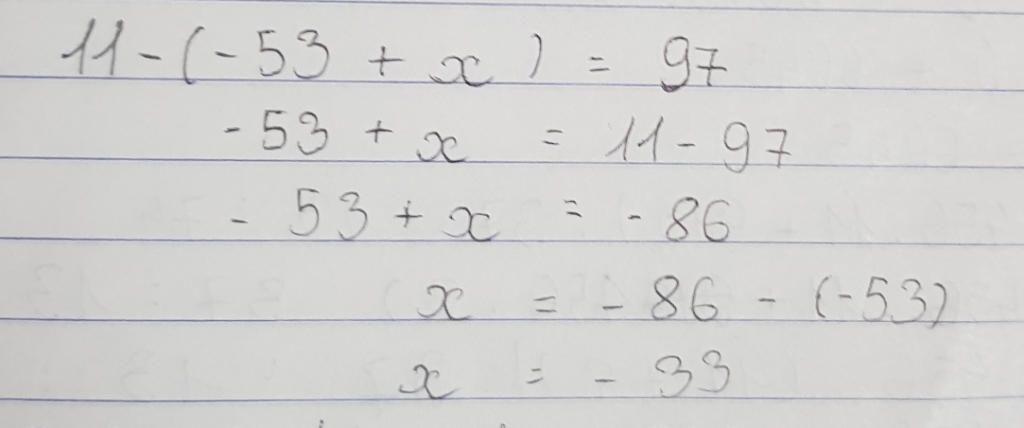 11 - (-53 + x) = 97
-53 + x = 11 - 97
-53 + x = -86
x = -86 - (-53)
x = -33